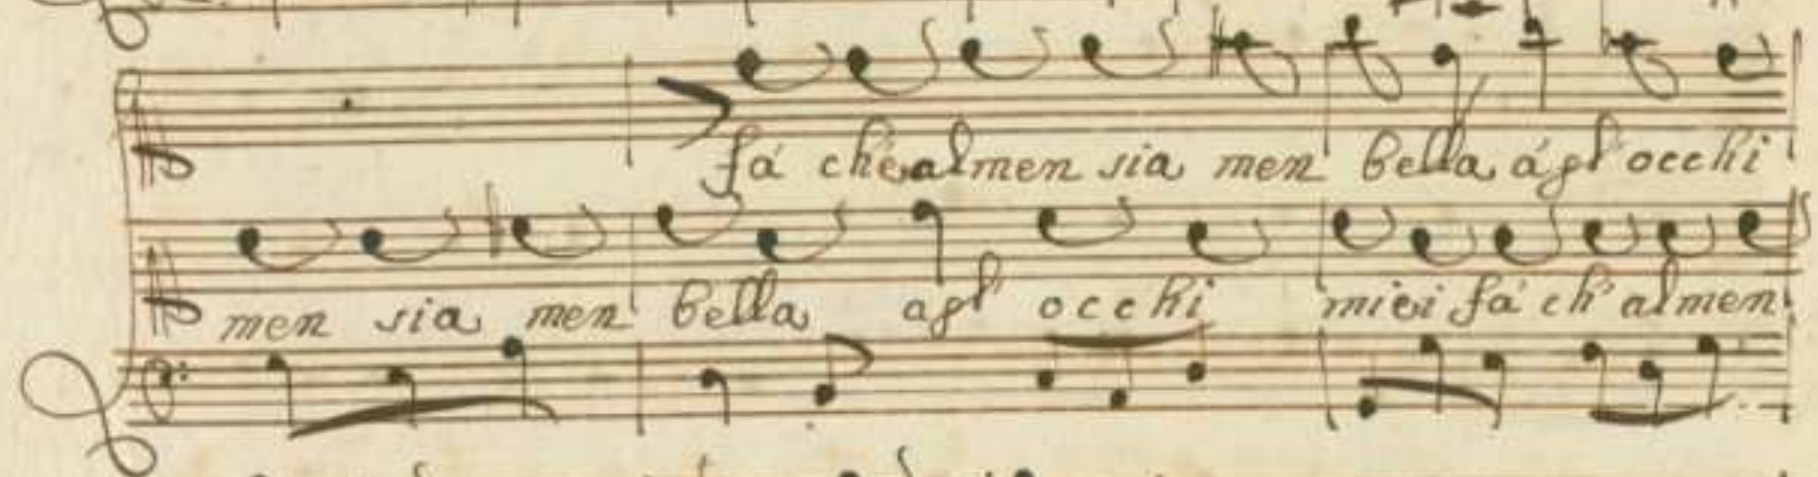 fá ché almen sia men bella ágl' occhi
men sia men bella agl' occhi miei fá ch' almen